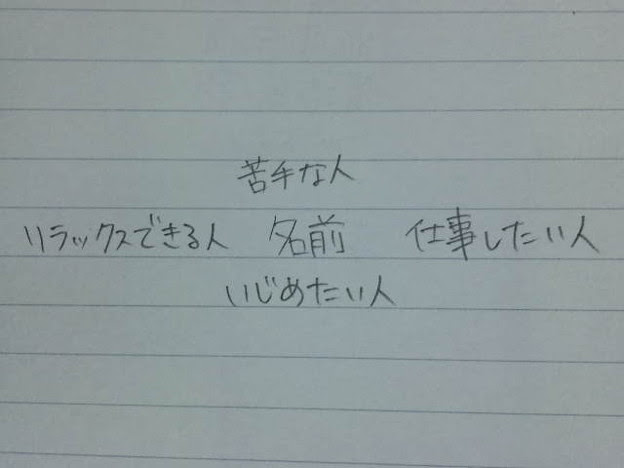 苦手な人
リラックスできる人 名前 仕事したい人
いじめたい人